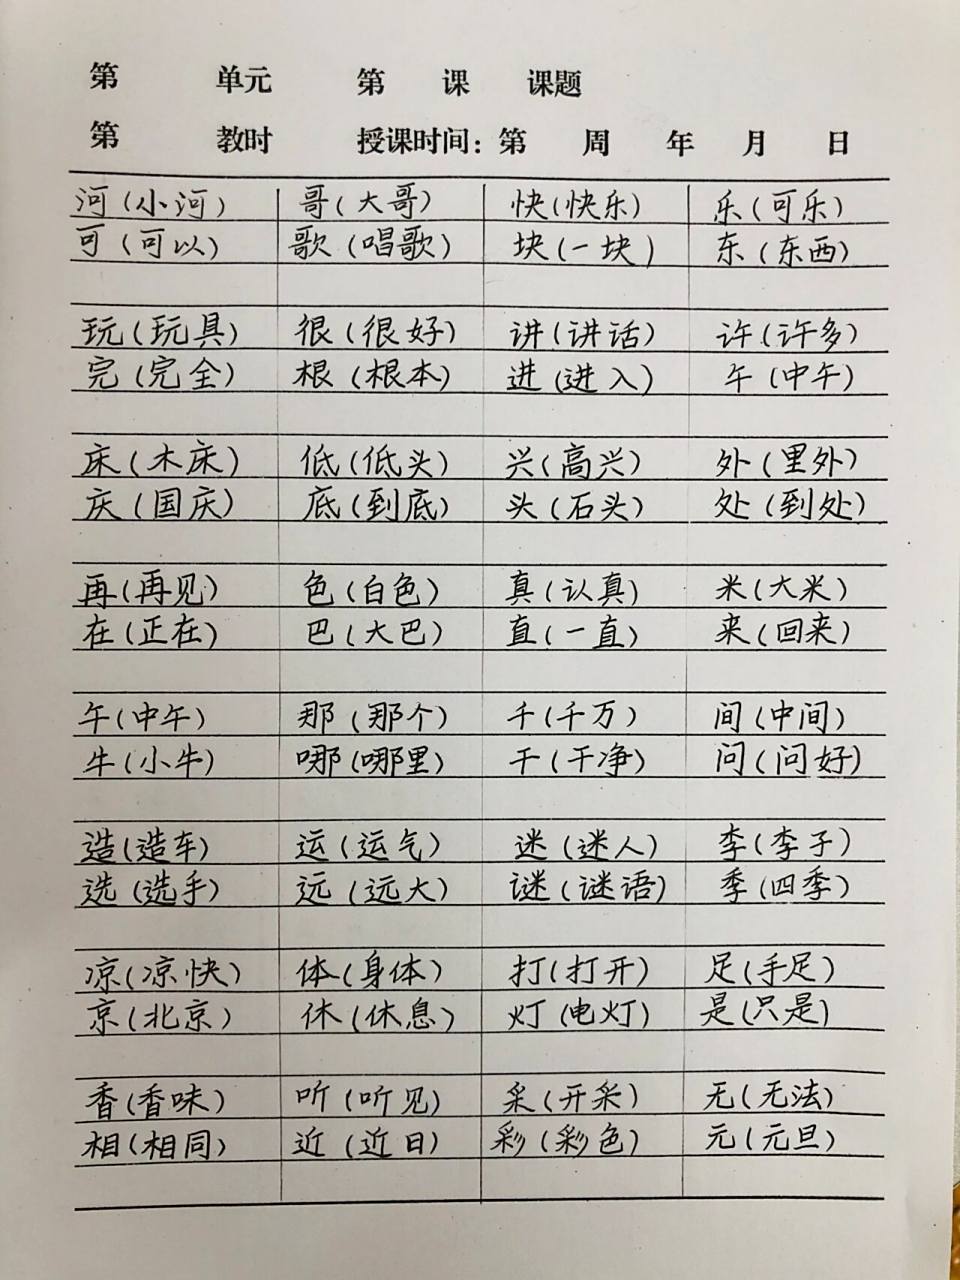 第 单元 第 课 课题
第 教时 授课时间：第 周 年 月 日
河(小河) 哥(大哥) 快(快乐) 乐(可乐)
可(可以) 歌(唱歌) 块(一块) 东(东西)
玩(玩具) 很(很好) 讲(讲话) 许(许多)
完(完全) 根(根本) 进(进入) 午(中午)
床(木床) 低(低头) 兴(高兴) 外(里外)
庆(国庆) 底(到底) 头(石头) 处(到处)
再(再见) 色(白色) 真(认真) 米(大米)
在(正在) 巴(大巴) 直(一直) 来(回来)
午(中午) 那(那个) 千(千万) 间(中间)
牛(小牛) 哪(哪里) 干(干净) 问(问好)
造(造车) 运(运气) 迷(迷人) 李(李子)
选(选手) 远(远大) 谜(谜语) 季(四季)
凉(凉快) 体(身体) 打(打开) 足(手足)
京(北京) 休(休息) 灯(电灯) 是(只是)
香(香味) 听(听见) 采(开采) 无(无法)
相(相同) 近(近日) 彩(彩色) 元(元旦)